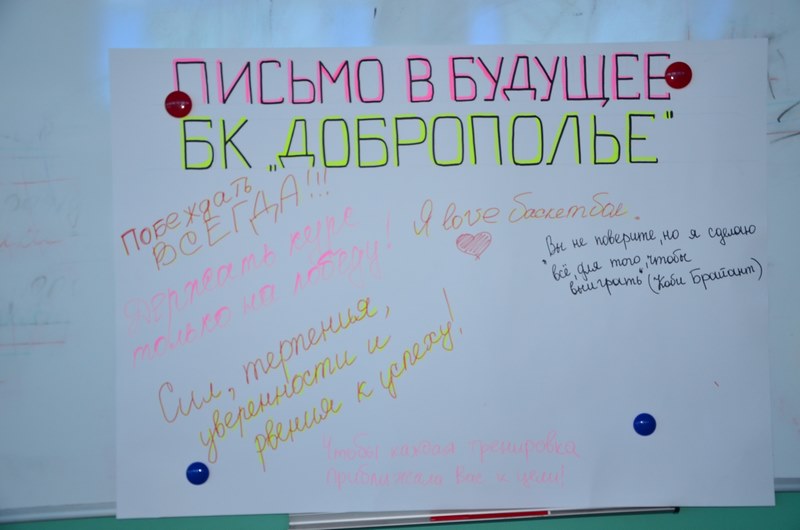 ПИСЬМО В БУДУЩЕЕ
БК „ДОБРОПОЛЬЕ"
ПОБЕЖДАТЬ
ВСЕГДА!!!
Держать курс
только на победу!
Я love баскетбол.
"Вы не поверите, но я сделаю
всё, для того, чтобы
выиграть" (Коби Брайант)
Сил, терпения,
уверенности и
рвения к успеху!
Чтобы каждая тренировка
приближала Вас к цели!